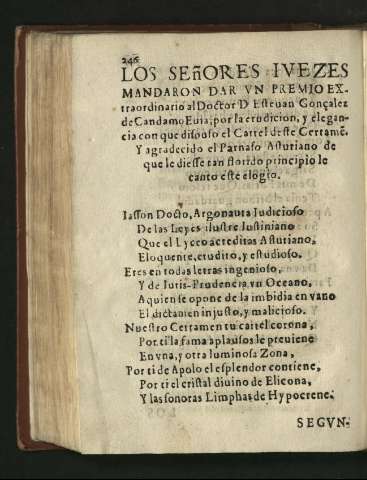 246
LOS SEñORES IVEZES
MANDARON DAR VN PREMIO EX-
traordinario al Doctor D Esteuan Gonçalez
de Candamo Euia, por la erudicion, y elegan-
cia con que dispuso el Cartel deste Certamẽ.
Y agradecido el Parnaso Asturiano de
que le diesse tan florido principio le
canto este elogio.
Iasson Docto, Argonauta Iudicioso
De las Leyes ilustre Iustiniano
Que el Lyceo acreditas Asturiano,
Eloquente, erudito, y estudioso.
Eres en todas letras ingenioso,
Y de Iuris-Prudencia vn Oceano,
A quien se opone de la imbidia en vano
El dictamen injusto, y malicioso.
Nuestro Certamen tu cartel corona,
Por ti la fama aplausos le preuiene
En vna, y otra luminosa Zona,
Por ti de Apolo el esplendor contiene,
Por ti el cristal diuino de Elicona,
Y las sonoras Limphas de Hypocrene.
SEGVN-